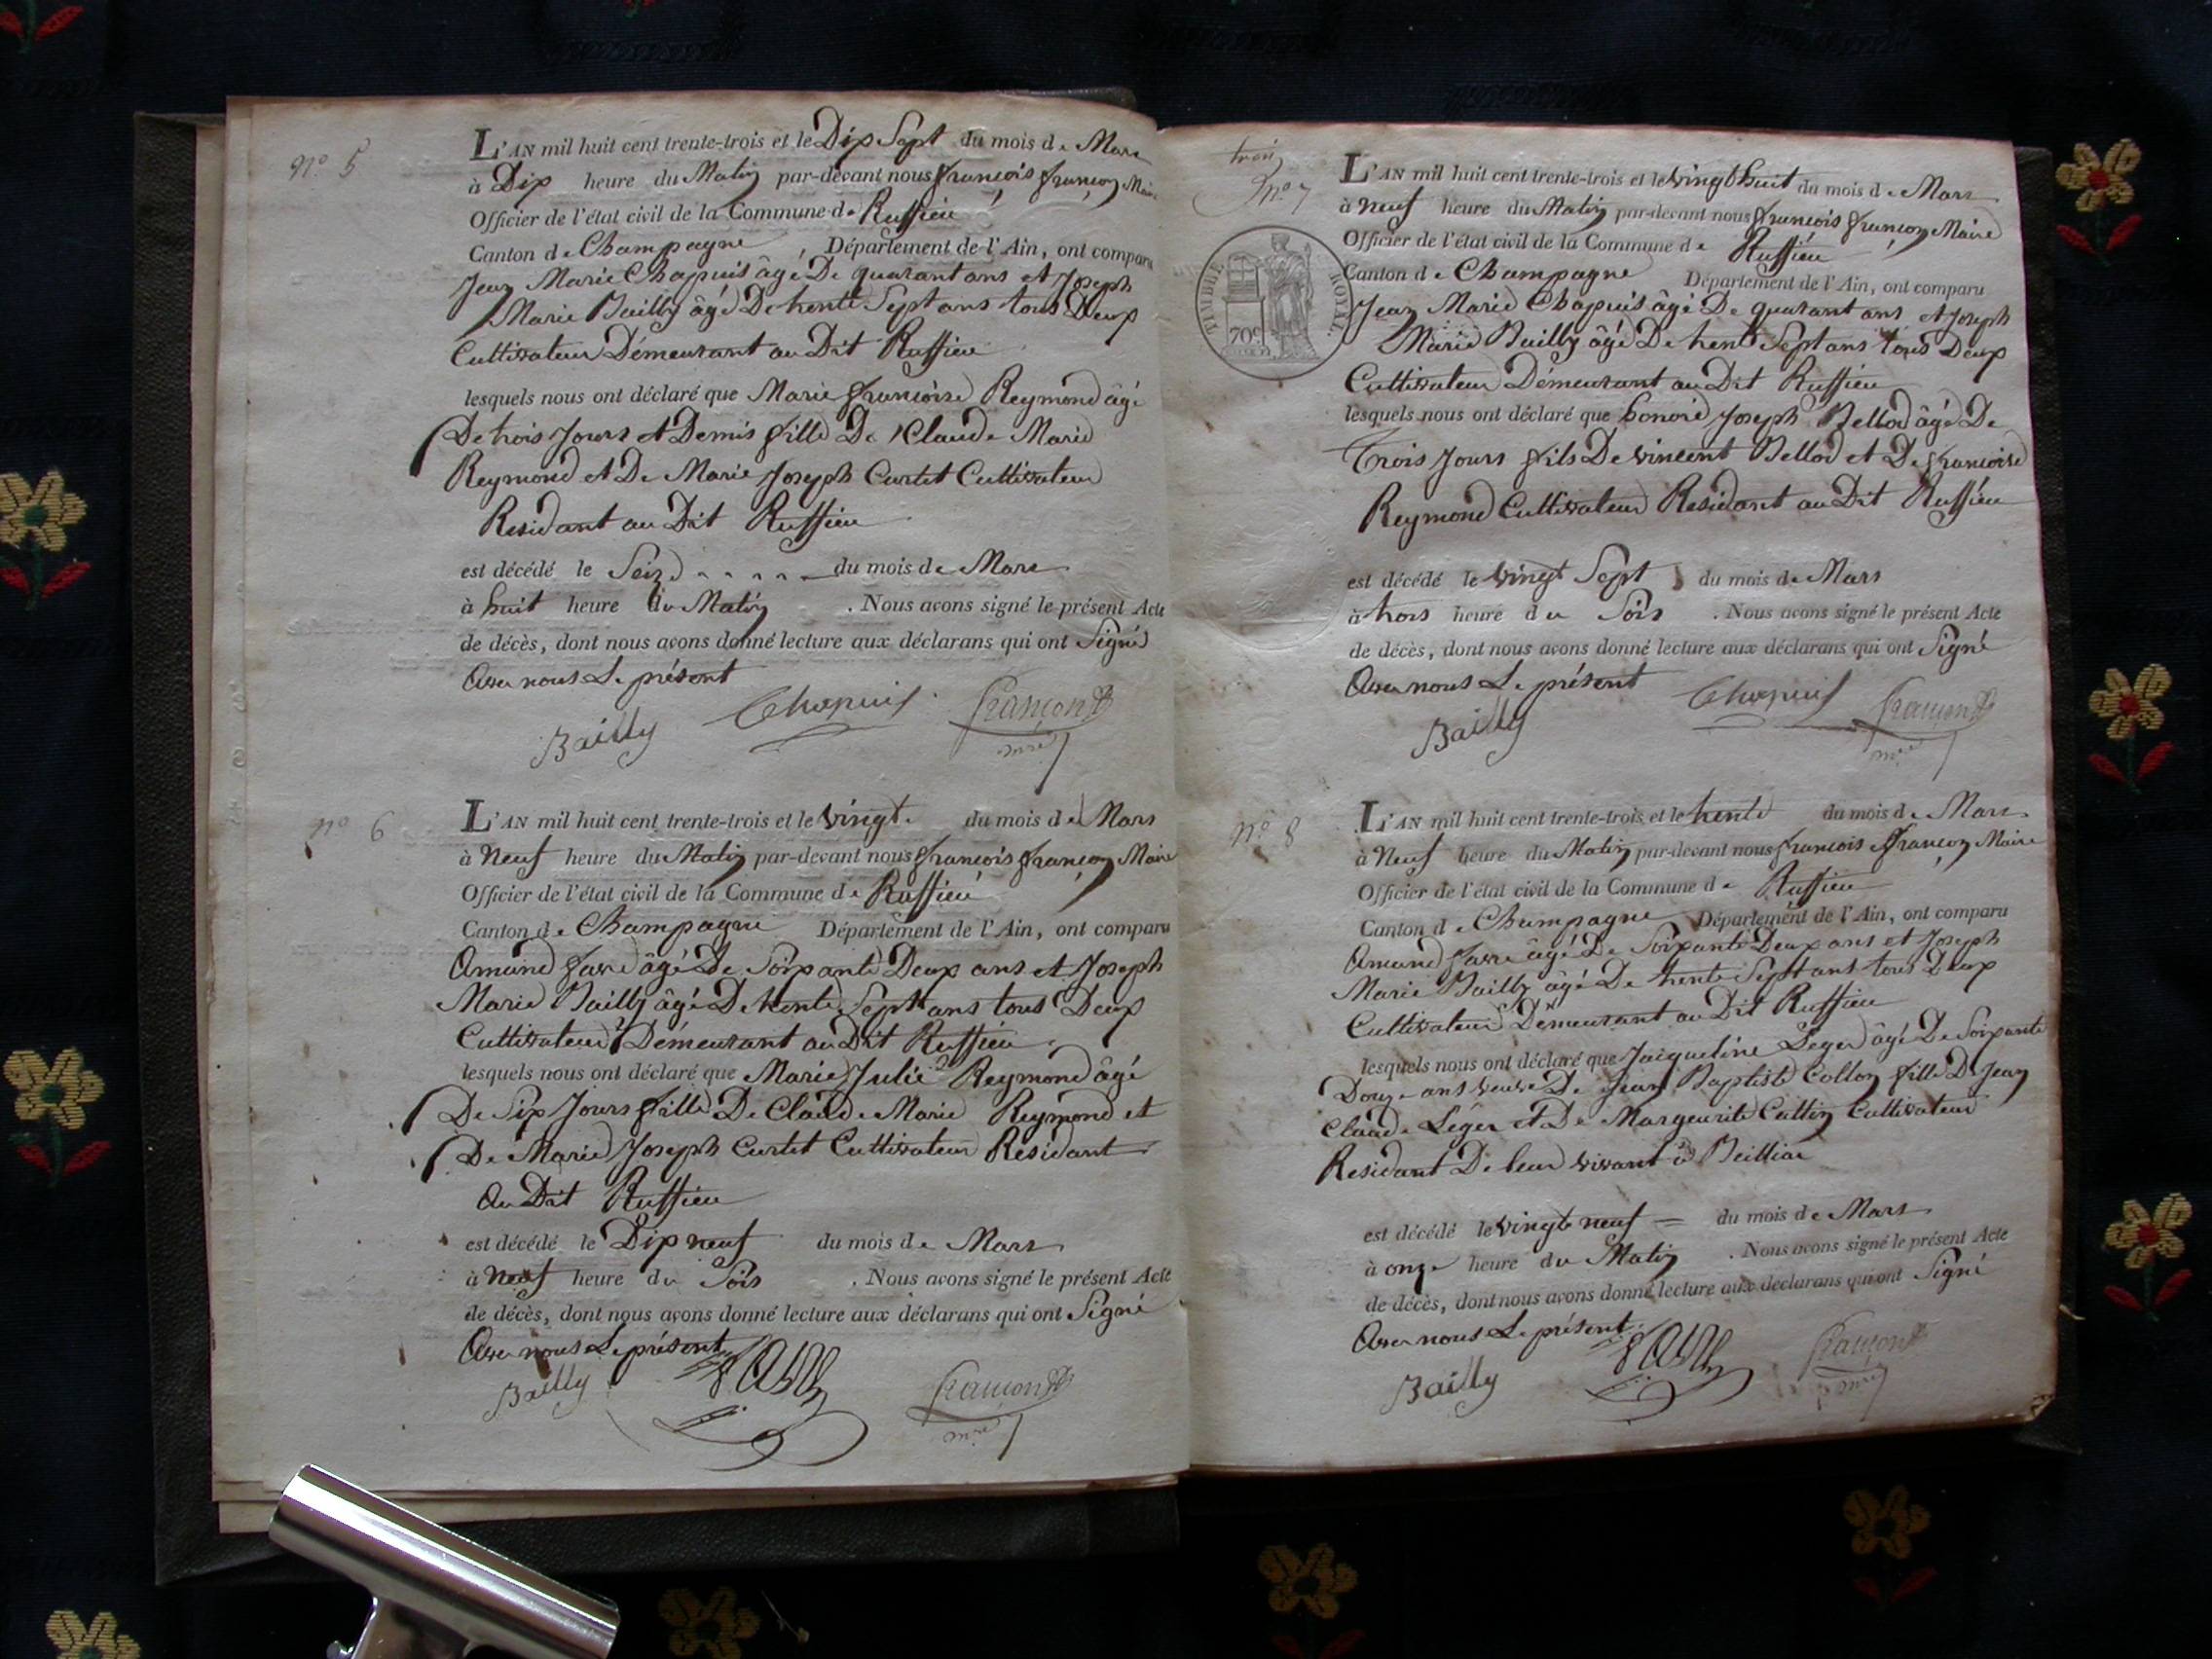 nº 5
L'AN mil huit cent trente-trois et le Dix Sept du mois de Mars
à Dix heure du Matin par-devant nous françois françon Maire
Officier de l'état civil de la Commune de Ruffieu
Canton de Champagne, Département de l'Ain, ont comparu
Jean Marie Chapuis âgé De quarant ans et Joseph
Marie Bailly âgé De trente Sept ans tous Deux
Cultivateur Démeurant au Dit Ruffieu
lesquels nous ont déclaré que Marie françoise Reymond âgé
De trois Jours et Demis fille De Claude Marie
Reymond et De Marie Joseph Curtet Cultivateur
Residant au Dit Ruffieu
est décédé le Seize du mois de Mars
à huit heure du Matin . Nous avons signé le présent Acte
de décès, dont nous avons donné lecture aux déclarans qui ont Signé
Avec nous Le présent
Bailly Chapuis françon
mre
nº 6
L'AN mil huit cent trente-trois et le vingt du mois de Mars
à Neuf heure du Matin par-devant nous françois françon Maire
Officier de l'état civil de la Commune de Ruffieu
Canton de Champagne Département de l'Ain, ont comparu
Amand favre âgé De Soixante Deux ans et Joseph
Marie Bailly âgé De trente Sept ans tous Deux
Cultivateur Démeurant au Dit Ruffieu
lesquels nous ont déclaré que Marie Julie Reymond âgé
De Six Jours fille De Claude Marie Reymond et
De Marie Joseph Curtet Cultivateur Résidant
Au Dit Ruffieu
est décédé le Dix neuf du mois de Mars
à Neuf heure du Soir . Nous avons signé le présent Acte
de décès, dont nous avons donné lecture aux déclarans qui ont Signé
Avec nous Le présent
Bailly favre françon
mre
trois
nº 7
L'AN mil huit cent trente-trois et le vingt huit du mois de Mars
à neuf heure du Matin par-devant nous françois françon Maire
Officier de l'état civil de la Commune de Ruffieu
TIMBRE ROYAL.
70c
Canton de Champagne Département de l'Ain, ont comparu
Jean Marie Chapuis âgé De quarant ans et Joseph
Marie Bailly âgé De trente Sept ans tous Deux
Cultivateur Démeurant au Dit Ruffieu
lesquels nous ont déclaré que honoré Joseph Bellod âgé De
Trois Jours fils De vincent Bellod et De françoise
Reymond Cultivateur Residant au Dit Ruffieu
est décédé le vingt Sept du mois de Mars
à trois heure du Soir . Nous avons signé le présent Acte
de décès, dont nous avons donné lecture aux déclarans qui ont Signé
Avec nous Le présent
Bailly Chapuis françon
mre
nº 8
L'AN mil huit cent trente-trois et le trente du mois de Mars
à Neuf heure du Matin par-devant nous francois françon Maire
Officier de l'état civil de la Commune de Ruffieu
Canton de Champagne Département de l'Ain, ont comparu
Amand favre âgé De Soixante Deux ans et Joseph
Marie Bailly âgé De trente Sept ans tous Deux
Cultivateur Démeurant au Dit Ruffieu
lesquels nous ont déclaré que Jacqueline Leger âgé De Soixante
Douze ans veuve De Jean Baptiste Collon fille De Jean
Claude Léger et De Margeurite Cattin Cultivateur
Residant De leur vivant à
est décédé le vingt neuf du mois de Mars
à onze heure du Matin . Nous avons signé le présent Acte
de décès, dont nous avons donné lecture aux déclarans qui ont Signé
Avec nous Le présent
Bailly favre françon
mre